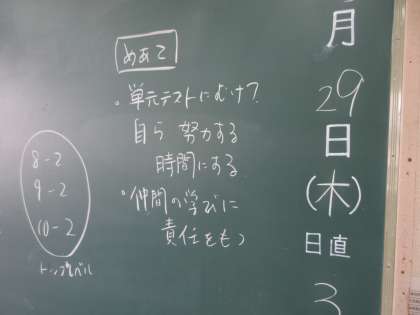 めあて
・単元テストにむけて
自ら 努力する
時間にする
・仲間の学びに
責任をもつ
8-2
9-2
10-2
トップレベル
月
29
日
(木)
日直
3